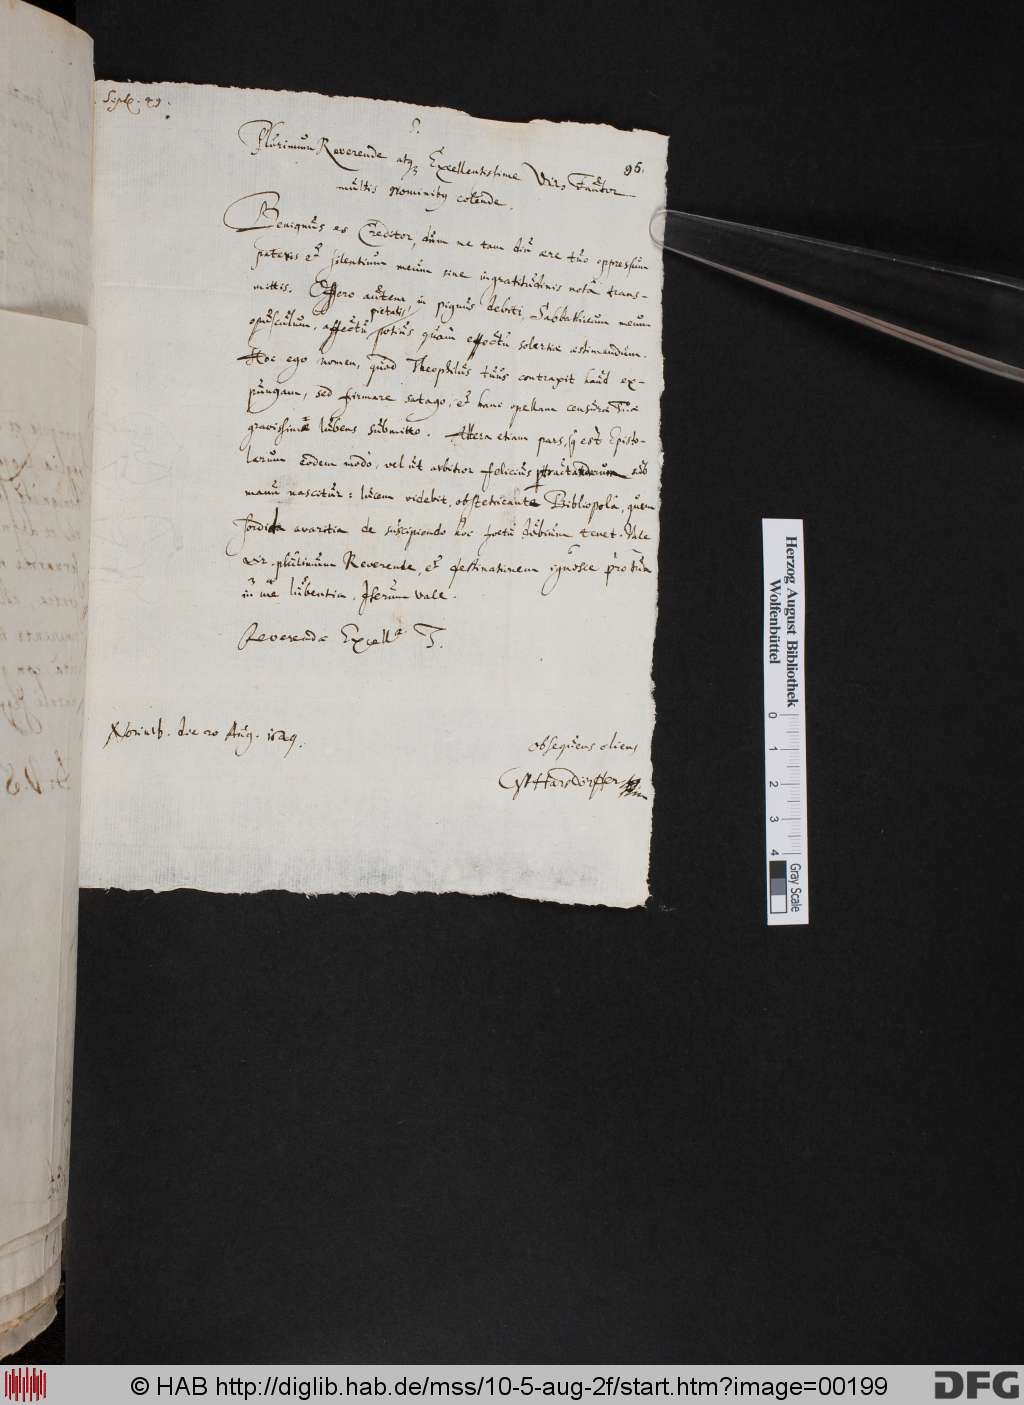 Sept. 49.
S.
96.
Plurimum Reverende atq3 Excellentissime Vir, Fautor
multis nominib9 colende.
Benignus es Creditor, dum me tam diu ære tuo oppressum
pateris et silentium meum sine ingratitudinis notâ trans-
mittis. Offero autem in pignus debiti, Sabbathicum meum
opusculum, affectu pietatis potius quàm effectu solertiæ æstimandum.
Hoc ego nomen, quod Theophilus tuus contraxit haud ex-
pungam, sed firmare satago, et hanc opellam censuræ Tuæ
gravissimæ lubens submitto. Altera etiam pars, q est Episto-
larum eodem modo, vel ut arbitror felicius ptractandarum sub
manu nascitur: lucem videbit, obstetricante Bibliopolâ, quem
sordida avaritia de suscipiendo hoc foetu dubium tenet. Vale
vir plurimum Reverende, et festinationem ignosce
in me lubentia. Iterum vale.
Reverendæ Excellæ T.
Norimb. die 20 Aug. 1649.
obsequens cliens
GPHarsdorffer
Herzog August Bibliothek
Wolfenbüttel
0 1 2 3 4
Gray Scale
© HAB http://diglib.hab.de/mss/10-5-aug-2f/start.htm?image=00199
DFG